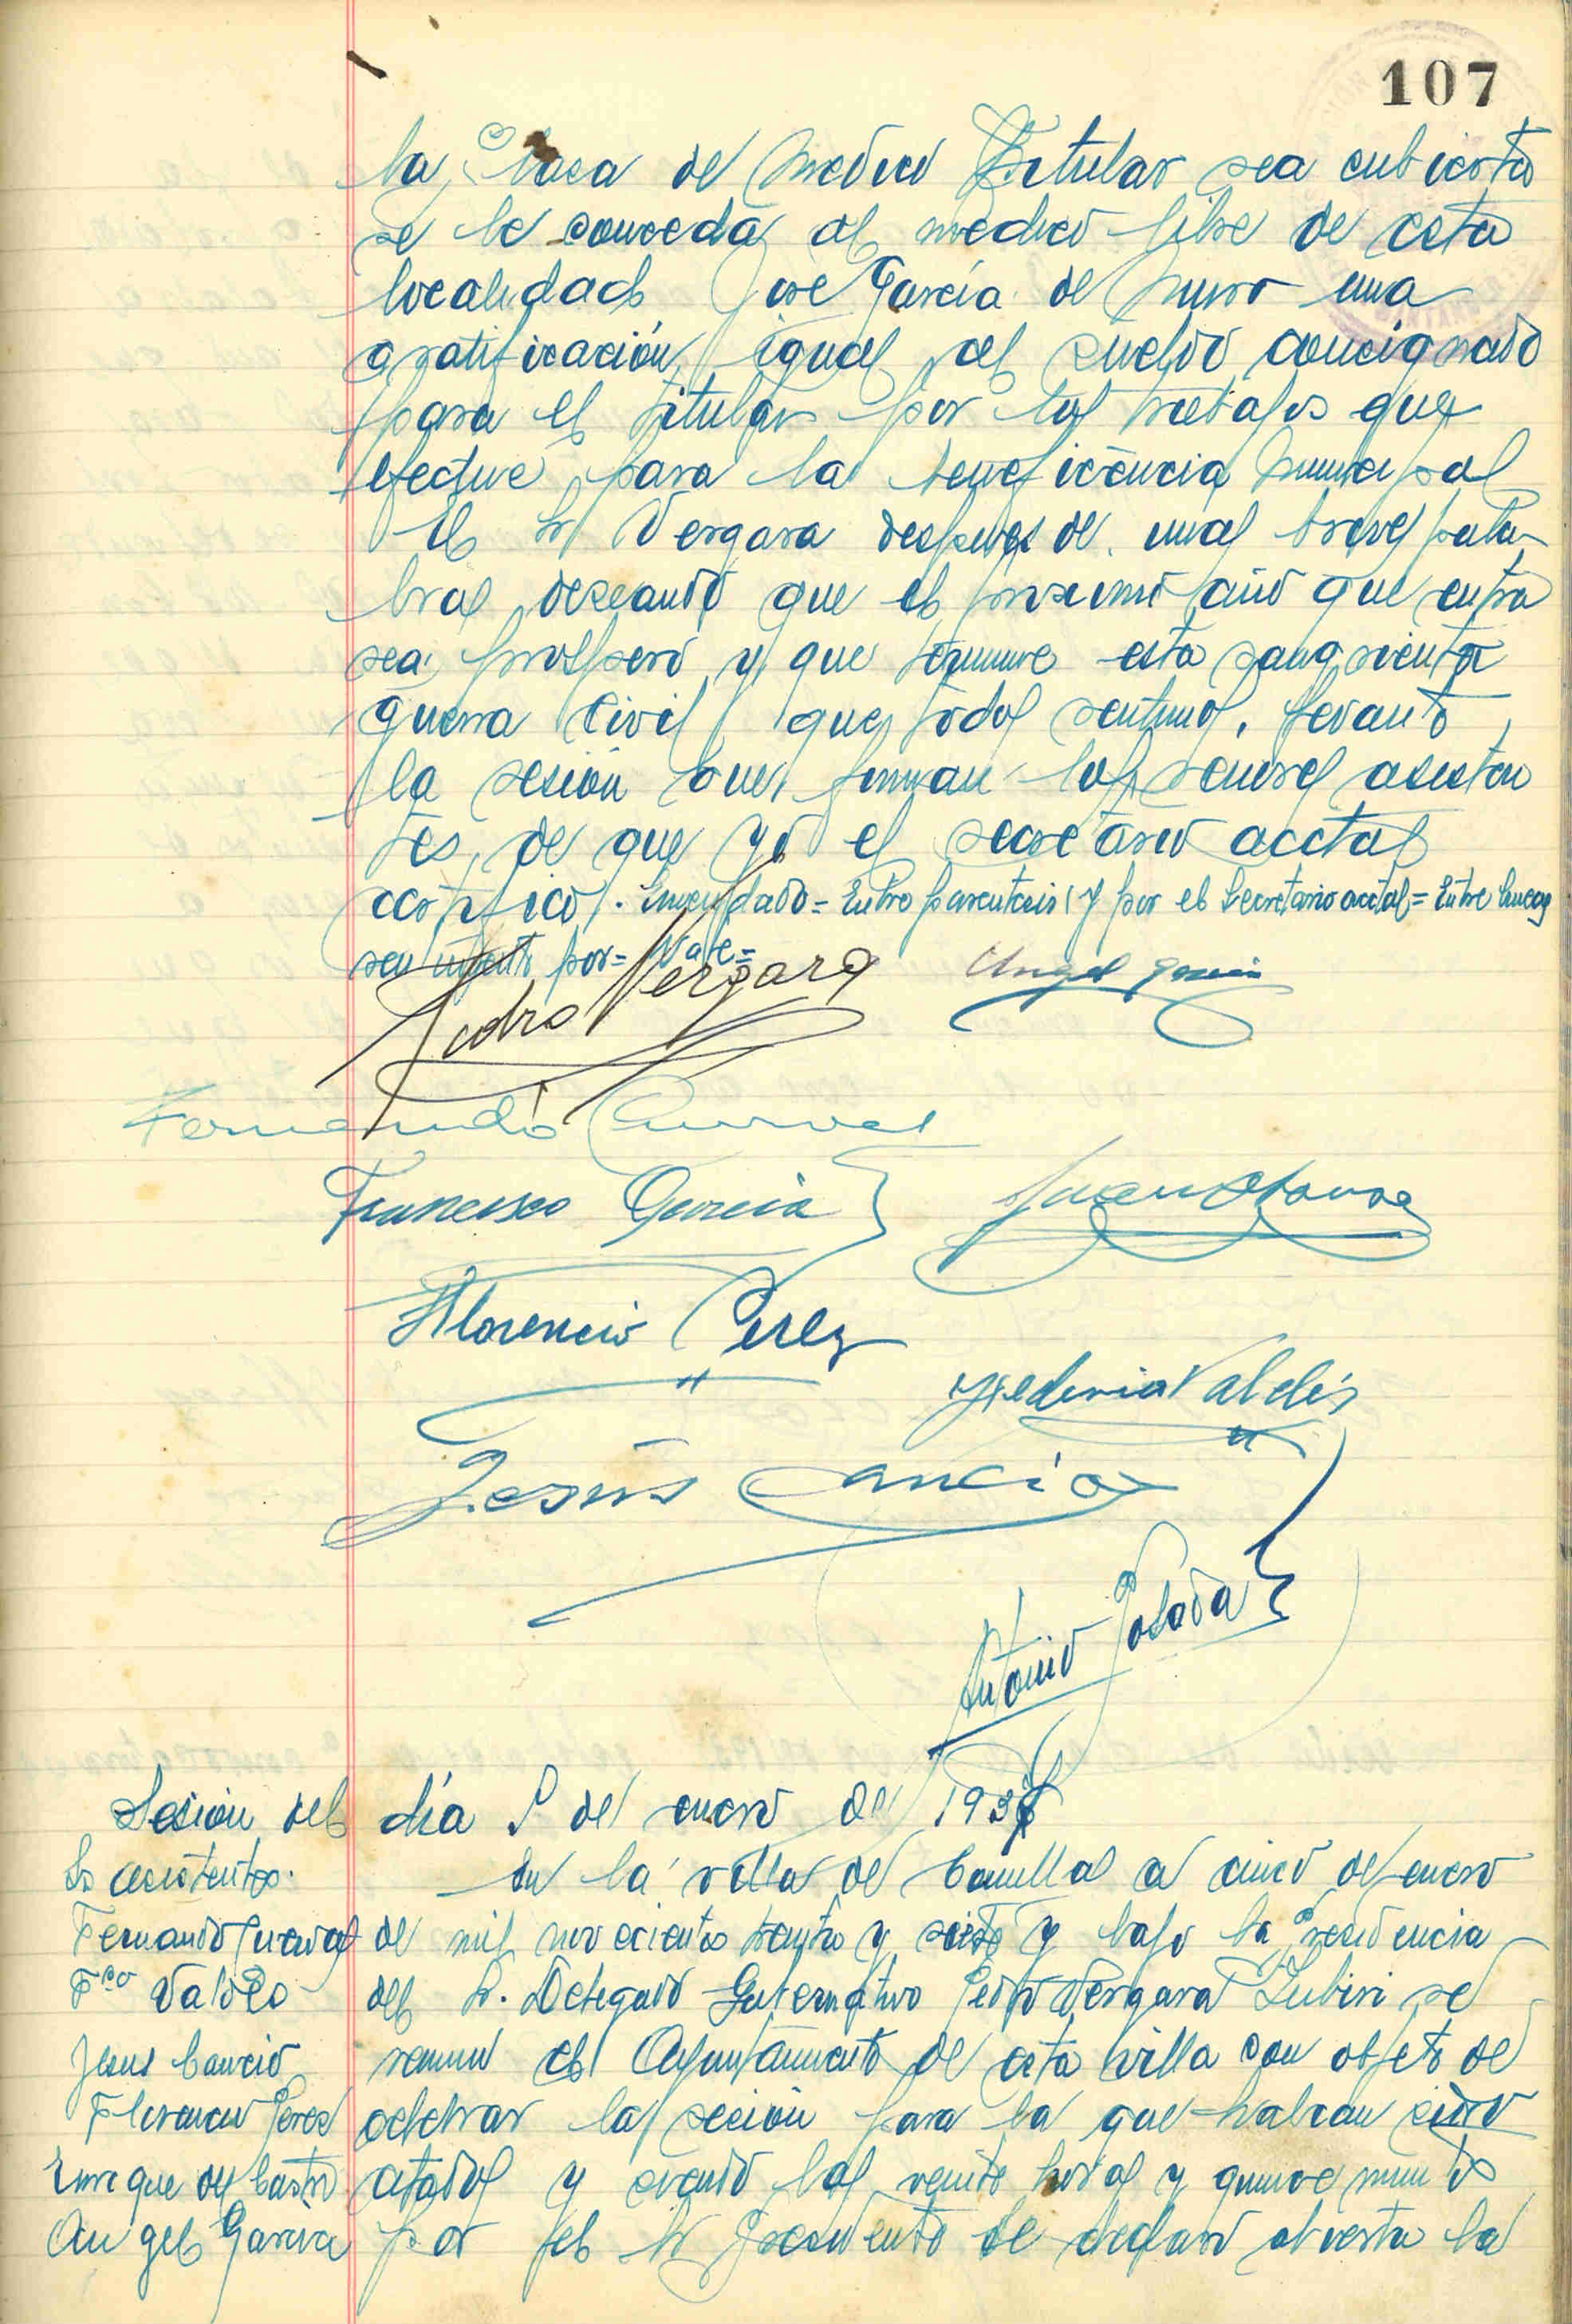 107
la Plaza de Medico Titular sea cubierta
se le conceda al medico libre de esta
localidad Jose García de Muro una
gratificación igual al sueldo consignado
para el titular por los trabajos que
efectue para la beneficencia Municipal
El Sr Vergara despues de unas breves pala-
bras deseando que el proximo año que entra
sea prospero y que termine esta sangrienta
guerra civil que todos sentimos. levanto
la sesión que firman los señores asisten
tes, de que yo el secretario acctal
certifico. Enmendado = Entre parentesis (y por el Secretario acctal = Entre lineas
por = Vale =
Pedro Vergara Angel Garcia
Fernando Cuevas
Francisco Garcia
Florencio Perez
Federico Valdés
Jesús Cancio
Antonio Posada
Sesión del día 5 de enero de 1937
Sres asistentes.
Fernando Cuevas
Fco Valdes
Jesus Cancio
Florencio Perez
Enrique del Castro
Angel Garcia
En la villa de Comillas a cinco de enero
de mil novecientos treinta y siete y bajo la Presidencia
del Sr. Delegado Gubernativo Pedro Vergara Zubiri se
reunió el Ayuntamiento de esta villa con objeto de
celebrar la sesión para la que habian sido
citados y siendo las veinte horas y quince minutos
por el Sr Presidente se declaró abierta la